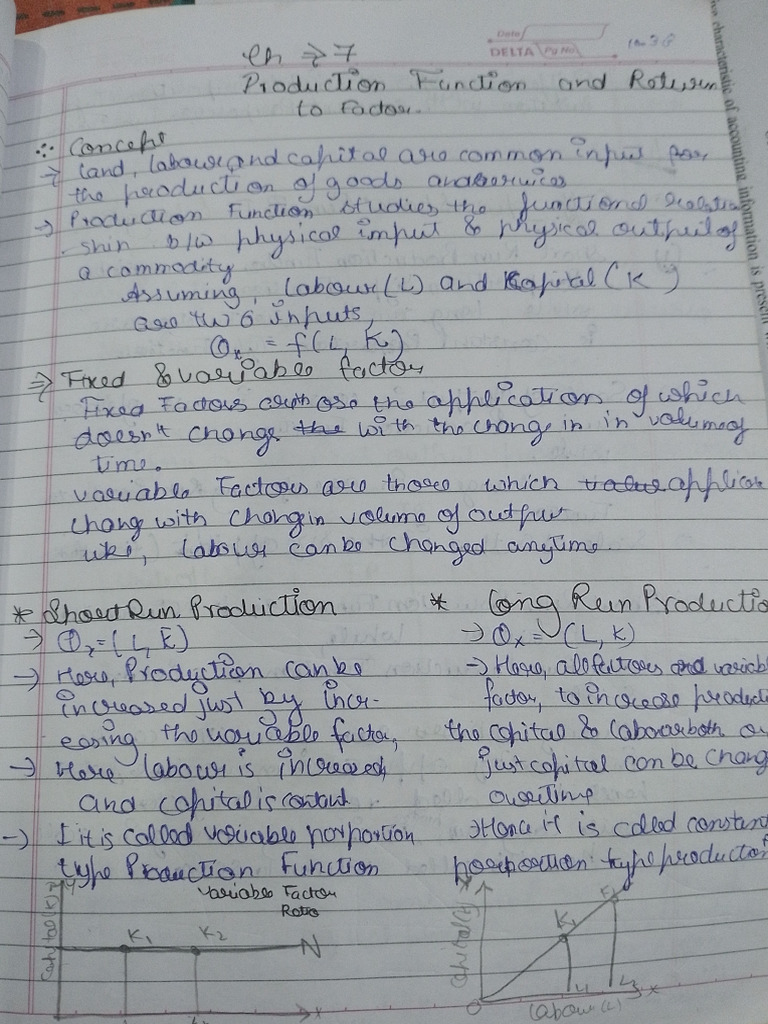 Date
DELTA Pg No.
ch ⇒ 7
Production Function and Return
to Factor.
Concept
→ Land, labour and capital are common input for
the production of goods and services
→ Production Function studies the functional relation
ship b/w physical input & physical output of
a commodity
Assuming, Labour (L) and Kapital (K)
are two inputs,
Qx = f(L, K)
⇒ Fixed & variable factor
Fixed Factors are those the application of which
doesn't change the with the change in in volume of
time.
variable Factors are those which value applica
chang with change in volume of output
like, labour can be changed anytime.
* Short Run Production
→ Qx = (L, K̄)
→ Here, Production can be
increased just by incr-
easing the variable factor,
→ Here labour is increased,
and capital is contant.
→ I it is called variable porportion
type Production Function
* Long Run Productio
→ Qx = (L, K)
→ Here, all factors and variabl
factor, to increase product
the capital & labour both or
just capital can be chang
overtime
→ Hence it is called constant
porportion type production
Variable Factor
Ratio
Capital (K)
Y
K1
K2
N
X
Capital (K)
Y
K1
O
L1
L2
X
Labour (L)
ive characteristic of accounting information is present